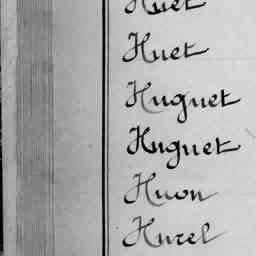 Huet
Huet
Huguet
Huguet
Huon
Hurel